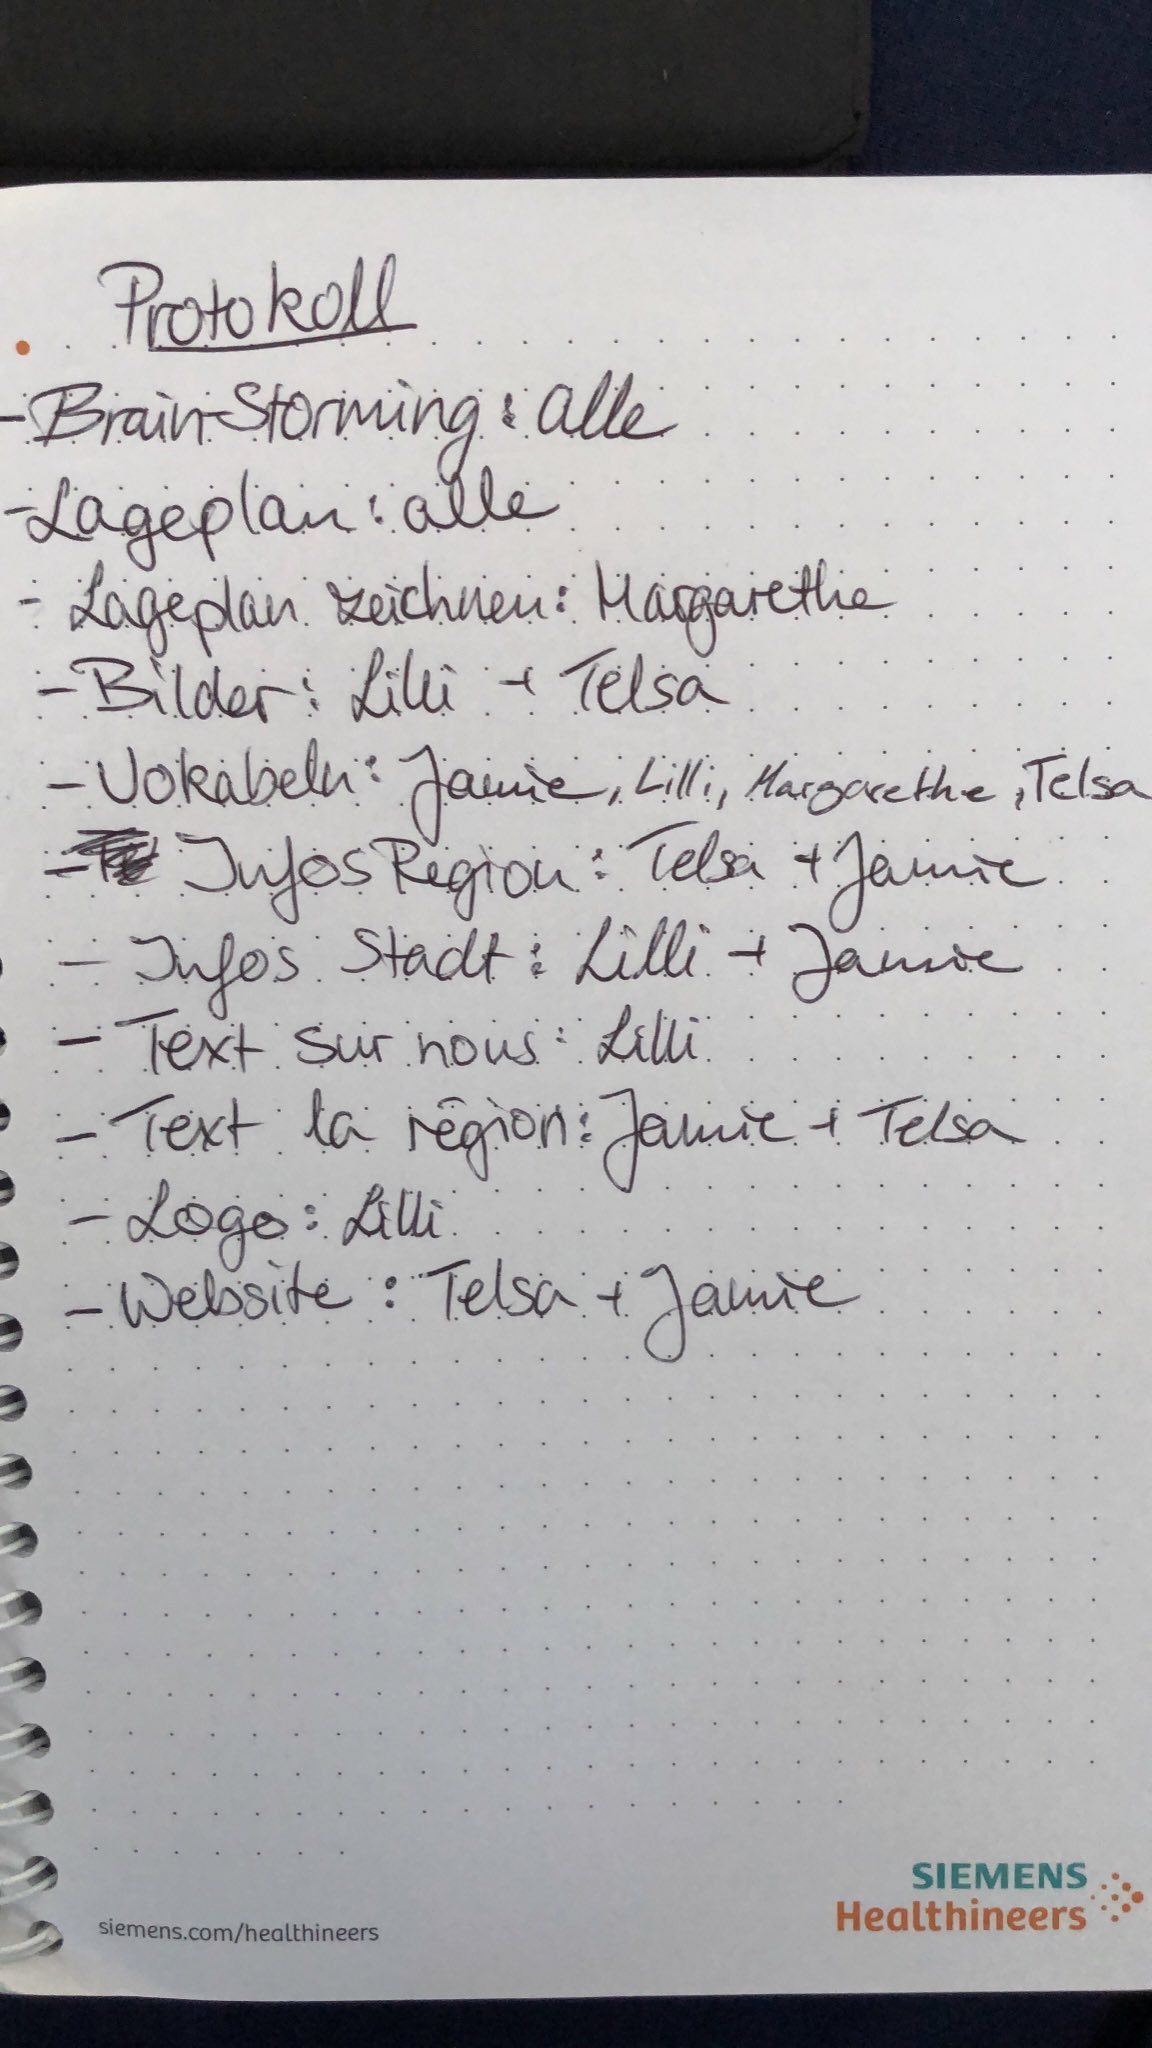 Protokoll
- Brain-Storming: alle
- Lageplan: alle
- Lageplan zeichnen: Margarethe
- Bilder: Lilli + Telsa
- Vokabeln: Jamie, Lilli, Margarethe, Telsa
- Infos Region: Telsa + Jamie
- Infos Stadt: Lilli + Jamie
- Text sur nous: Lilli
- Text la région: Jamie + Telsa
- Logo: Lilli
- Website: Telsa + Jamie
SIEMENS
Healthineers
siemens.com/healthineers